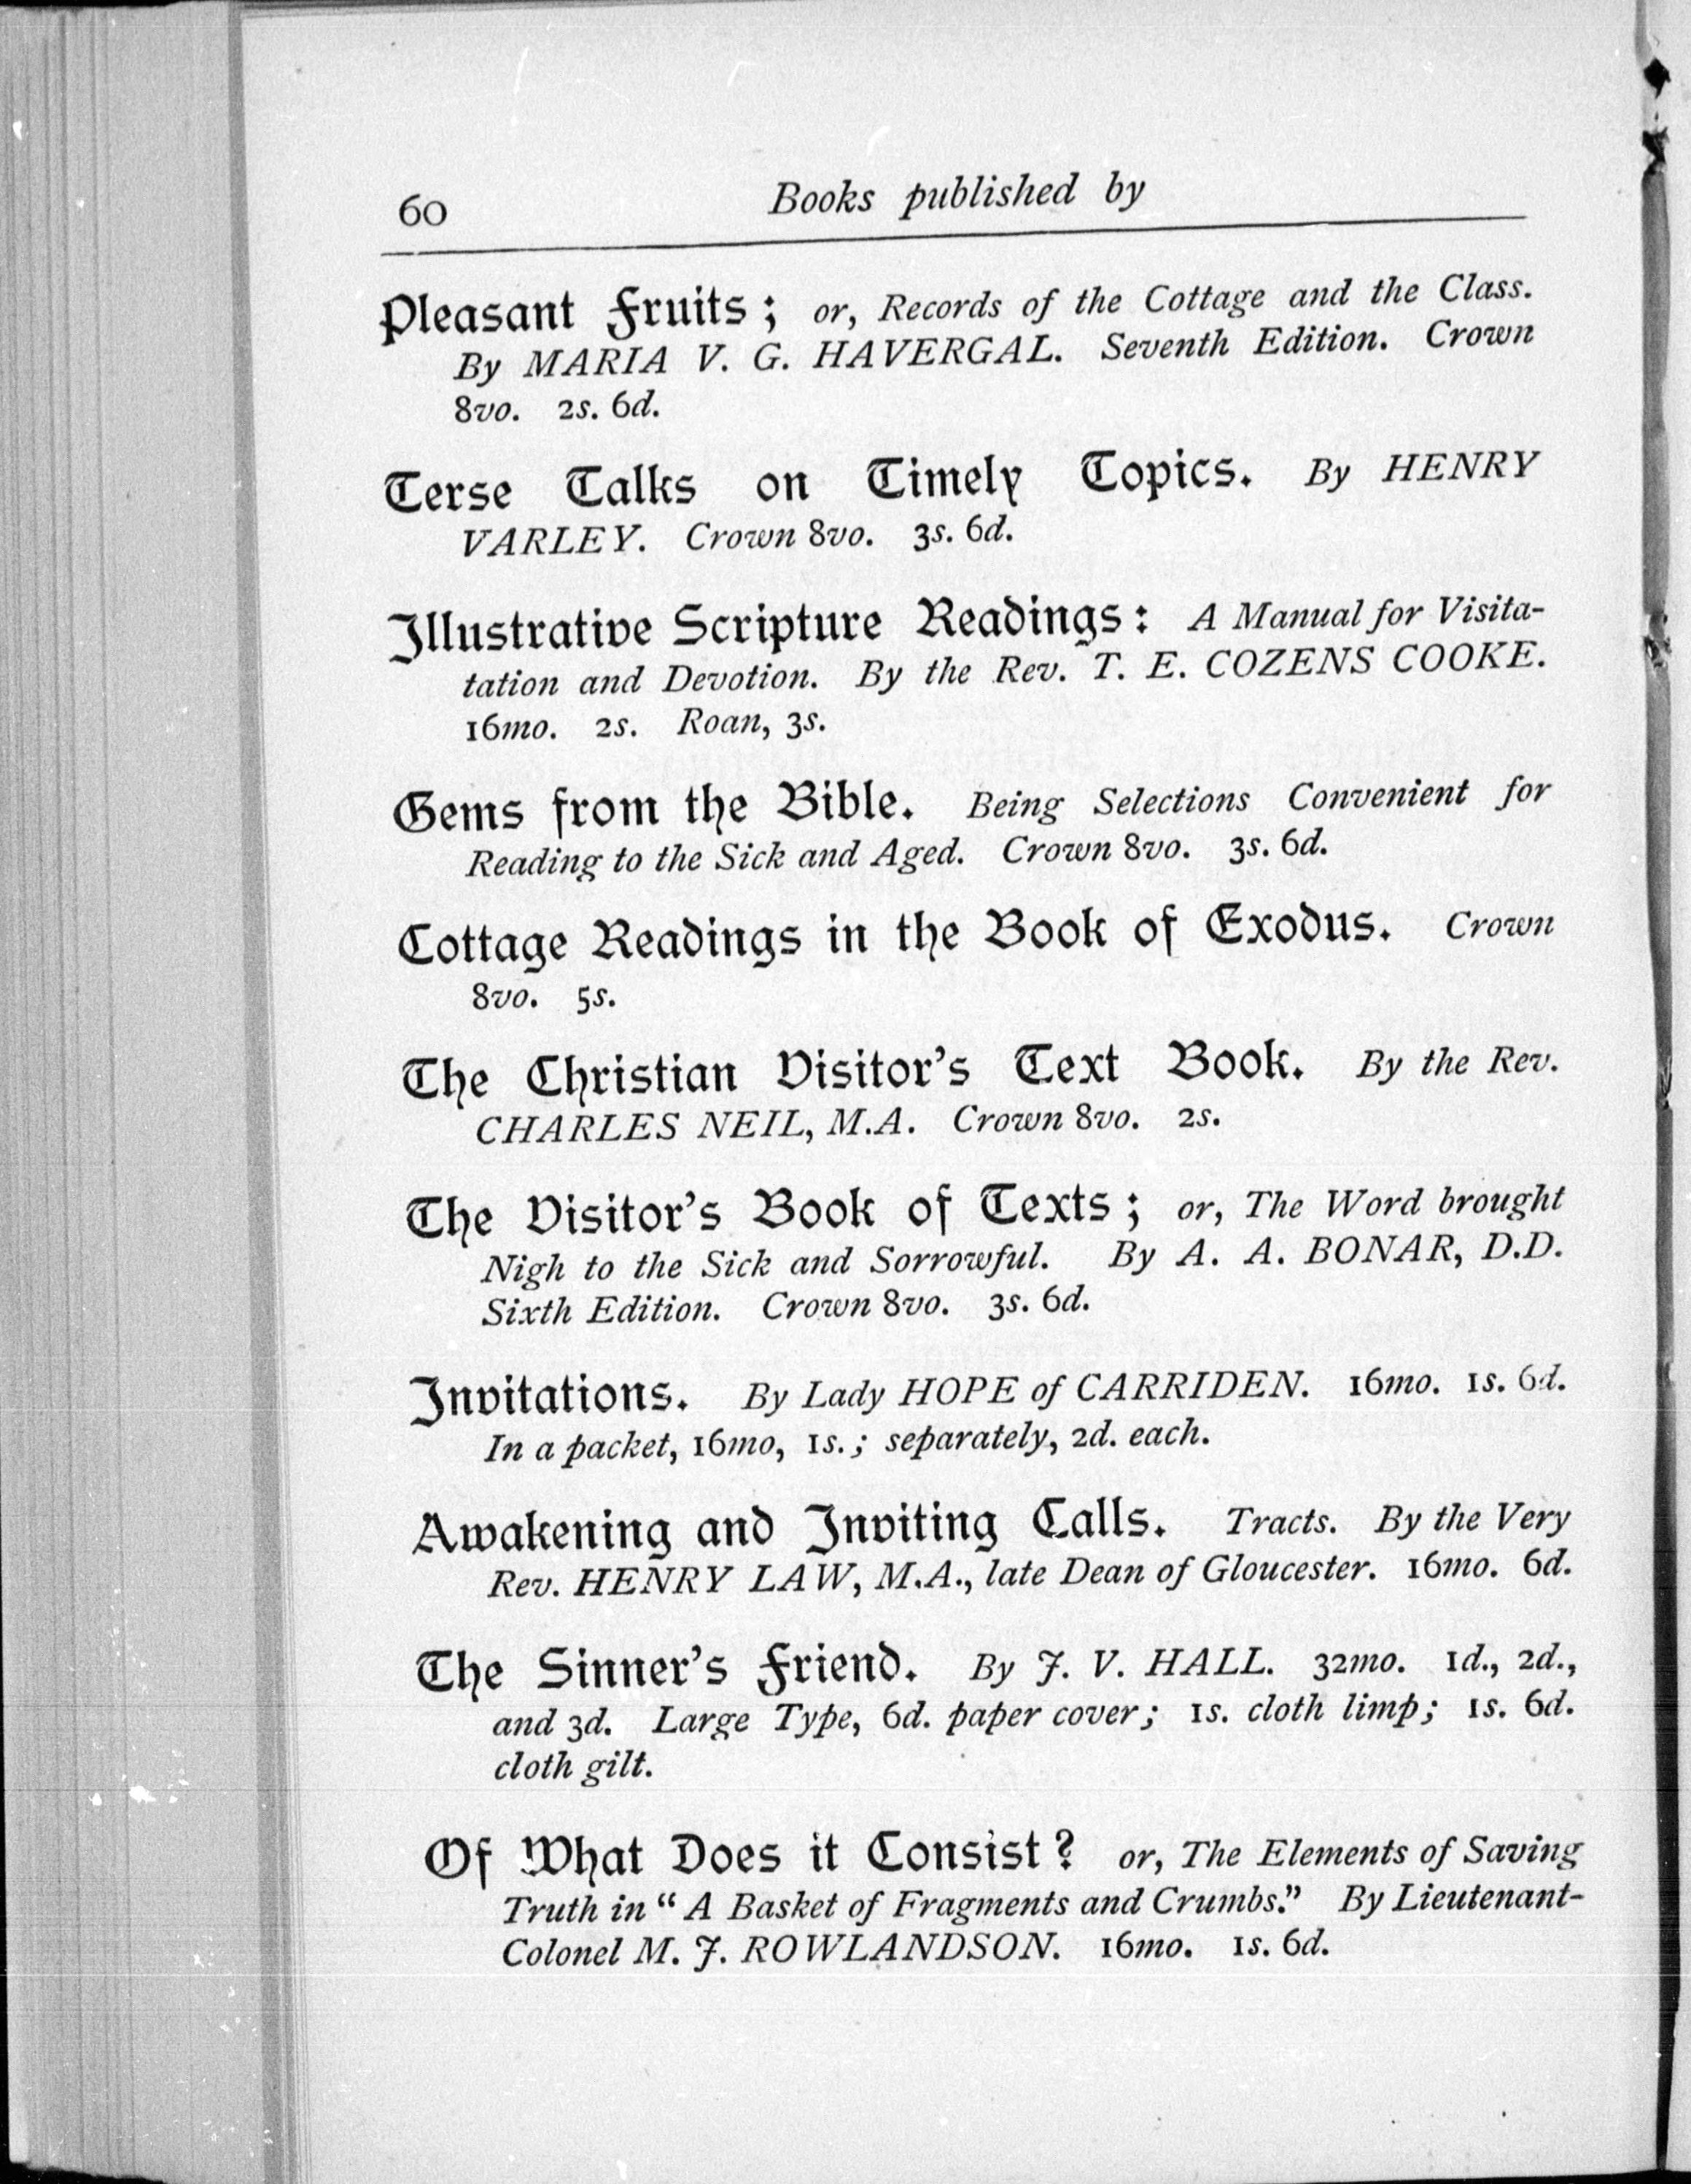 60 Books published by
Pleasant Fruits; or, Records of the Cottage and the Class.
By MARIA V. G. HAVERGAL. Seventh Edition. Crown
8vo. 2s. 6d.
Terse Talks on Timely Topics. By HENRY
VARLEY. Crown 8vo. 3s. 6d.
Illustrative Scripture Readings: A Manual for Visita-
tation and Devotion. By the Rev. T. E. COZENS COOKE.
16mo. 2s. Roan, 3s.
Gems from the Bible. Being Selections Convenient for
Reading to the Sick and Aged. Crown 8vo. 3s. 6d.
Cottage Readings in the Book of Exodus. Crown
8vo. 5s.
The Christian Visitor's Text Book. By the Rev.
CHARLES NEIL, M.A. Crown 8vo. 2s.
The Visitor's Book of Texts; or, The Word brought
Nigh to the Sick and Sorrowful. By A. A. BONAR, D.D.
Sixth Edition. Crown 8vo. 3s. 6d.
Invitations. By Lady HOPE of CARRIDEN. 16mo. 1s. 6d.
In a packet, 16mo, 1s.; separately, 2d. each.
Awakening and Inviting Calls. Tracts. By the Very
Rev. HENRY LAW, M.A., late Dean of Gloucester. 16mo. 6d.
The Sinner's Friend. By J. V. HALL. 32mo. 1d., 2d.,
and 3d. Large Type, 6d. paper cover; 1s. cloth limp; 1s. 6d.
cloth gilt.
Of What Does it Consist? or, The Elements of Saving
Truth in "A Basket of Fragments and Crumbs." By Lieutenant-
Colonel M. J. ROWLANDSON. 16mo. 1s. 6d.